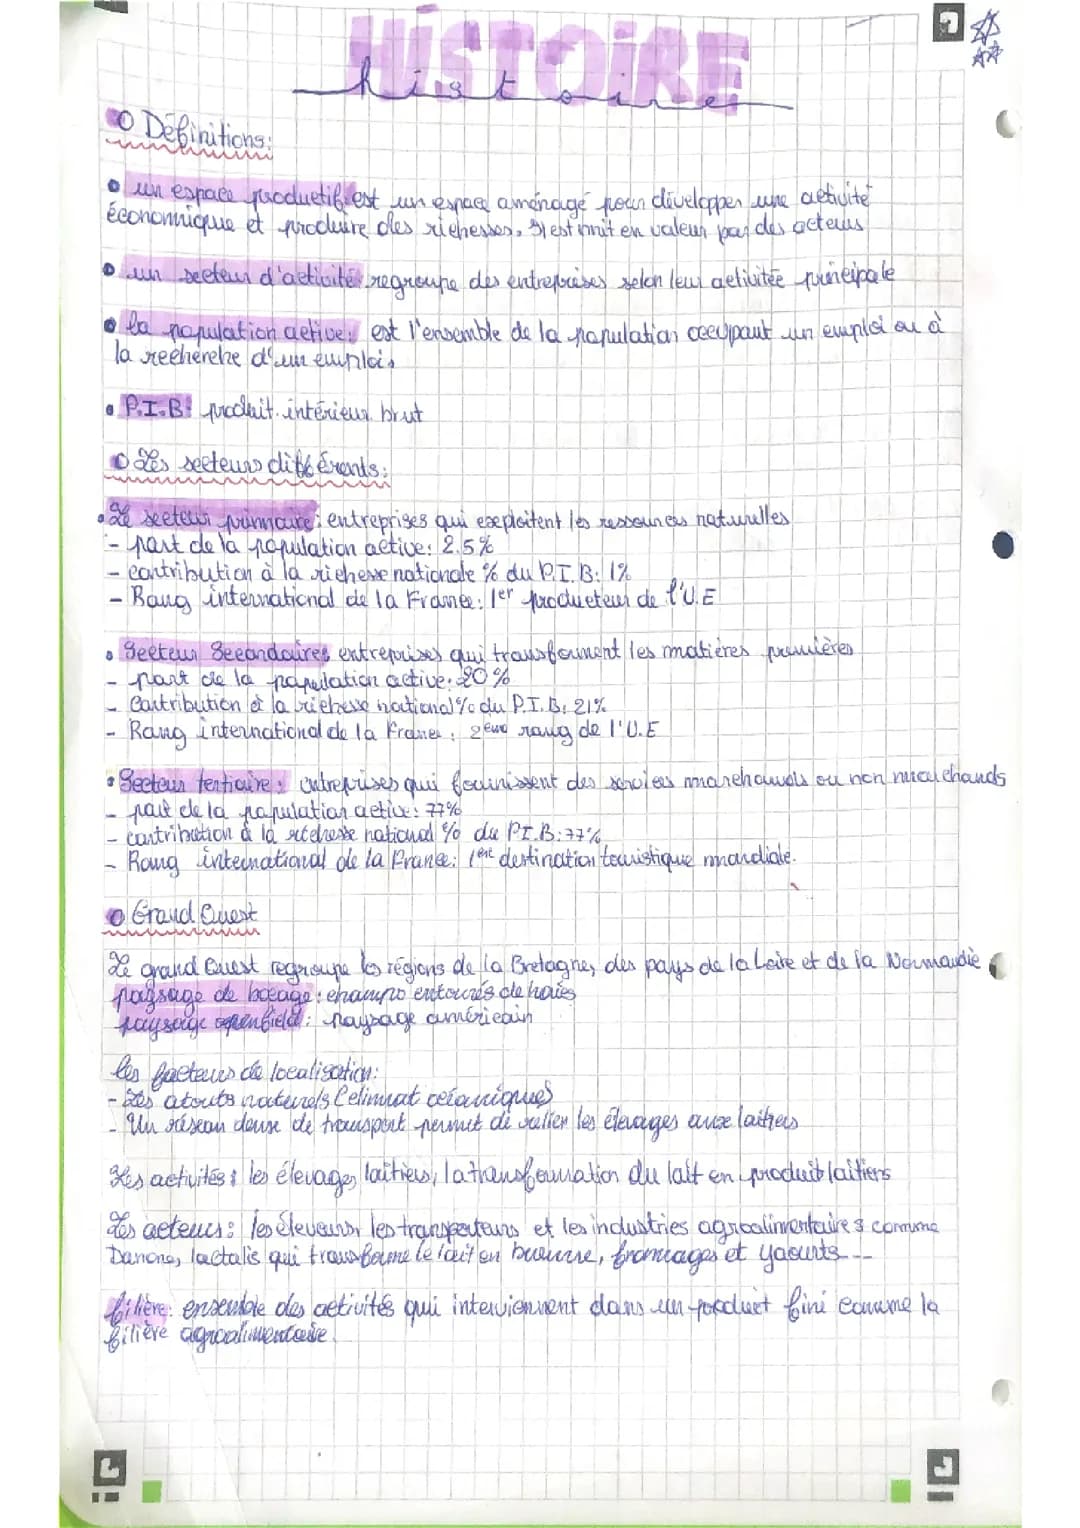 HiSTOiRE
histoire
Définitions:
un espace productif est un espace aménagé pour développer une activité
économique et produire des richesses. Il est mit en valeur par des acteurs
un secteur d'activité regroupe des entreprises selon leur activitée principale
la population active: est l'ensemble de la population occupant un emploi ou à
la recherche d'un emploi.
P.I.B: produit intérieur brut
Les secteurs différents:
Le secteur primaire: entreprises qui exploitent les ressources naturelles
- part de la population active: 2.5%
- contribution à la richesse nationale % du P.I.B: 1%
- Rang international de la France: 1er producteur de l'U.E
Secteur Secondaire: entreprises qui transforment les matières premières
- part de la population active: 20%
- Contribution à la richesse national % du P.I.B: 21%
- Rang international de la France: 2ème rang de l'U.E
Secteur tertiaire: entreprises qui fournissent des services marchands ou non marchands
- part de la population active: 77%
- contribution à la richesse national % du P.I.B: 77%
- Rang international de la France: 1ere destination touristique mondiale.
Grand Ouest
Le grand Ouest regroupe les régions de la Bretagne, des pays de la Loire et de la Normandie
paysage de bocage: champs entourés de haies
paysage openfield: paysage américain
les facteurs de localisation:
- Les atouts naturels (climat océaniques
- Un réseau dense de transport permet de relier les élevages aux laitiers
Les activités: les élevages laitiers, la transformation du lait en produit laitiers
Les acteurs: les éleveurs, les transporteurs et les industries agroalimentaires comme
Danone, lactalis qui transforme le lait en beurre, fromages et yaourts...
filière: ensemble des activités qui interviennent dans un produit fini comme la
filière agroalimentaire.